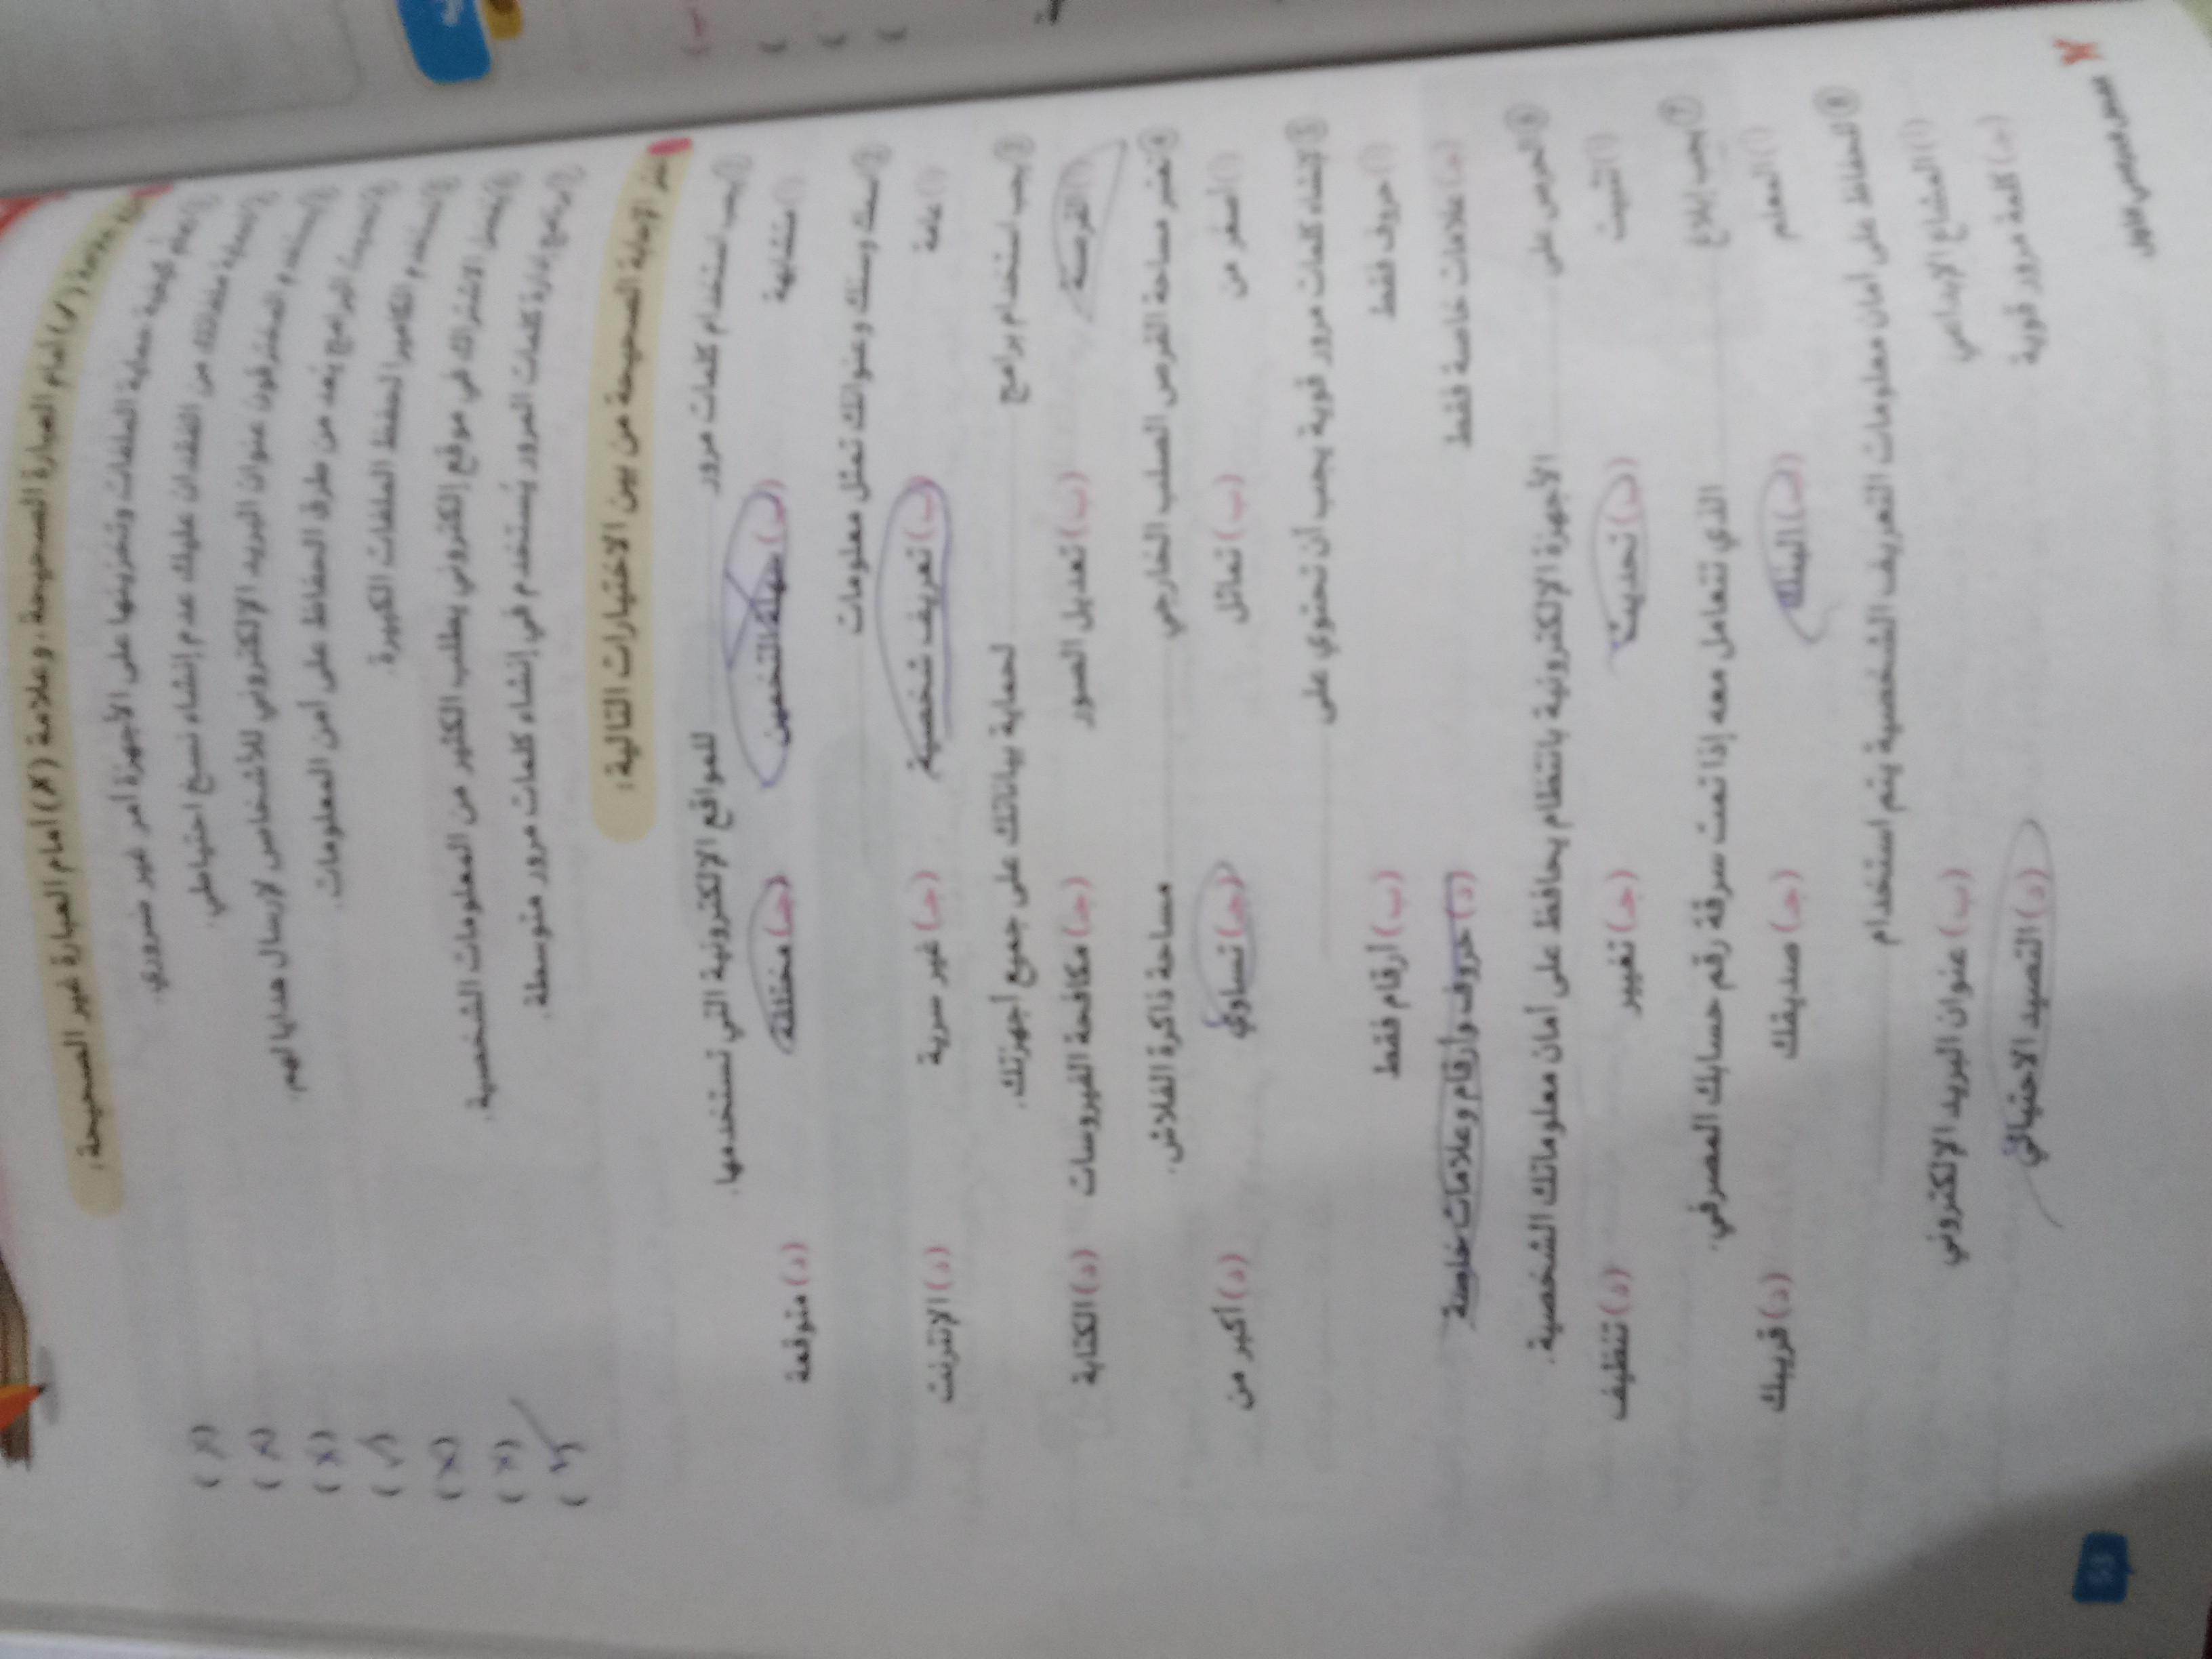 علامة (✓) أمام العبارة الصحيحة، وعلامة (✗) أمام العبارة غير الصحيحة:
كيفية حماية الملفات وتخزينها على الأجهزة أمر غير ضروري. (✗)
لحماية ملفاتك من الفقدان عليك عدم إنشاء نسخ احتياطي. (✗)
يستخدم المخترقون عنوان البريد الإلكتروني للأشخاص لإرسال هدايا لهم. (✗)
تحديث البرامج يُعد من طرق الحفاظ على أمن المعلومات. (✓)
تستخدم الكاميرا لحفظ الملفات الكبيرة. (✗)
يُفضل الاشتراك في موقع إلكتروني يطلب الكثير من المعلومات الشخصية. (✗)
برنامج إدارة كلمات المرور يُستخدم في إنشاء كلمات مرور متوسطة.
اختر الإجابة الصحيحة من بين الاختيارات التالية:
① يجب استخدام كلمات مرور للمواقع الإلكترونية التي تستخدمها.
(أ) متشابهة (ب) سهلة التخمين (جـ) مختلفة (د) متوقعة
② سنك وعنوانك تمثل معلومات
(أ) عامة (ب) تعريف شخصية (جـ) غير سرية (د) الإنترنت
③ يجب استخدام برامج لحماية بياناتك على جميع أجهزتك.
(أ) القرصنة (ب) تعديل الصور (جـ) مكافحة الفيروسات (د) الكتابة
④ تعتبر مساحة القرص الصلب الخارجي مساحة ذاكرة الفلاش.
(أ) أصغر من (ب) تماثل (جـ) تساوي (د) أكبر من
⑤ لإنشاء كلمات مرور قوية يجب أن تحتوي على
(أ) حروف فقط (ب) أرقام فقط
(جـ) علامات خاصة فقط (د) حروف وأرقام وعلامات خاصة
⑥ الحرص على الأجهزة الإلكترونية بانتظام يحافظ على أمان معلوماتك الشخصية.
(أ) التثبيت (ب) تحديث (جـ) تغيير (د) تنظيف
⑦ يجب إبلاغ الذي تتعامل معه إذا تمت سرقة رقم حسابك المصرفي.
(أ) المعلم (ب) البنك (جـ) صديقك (د) قريبك
⑧ للحفاظ على أمان معلومات التعريف الشخصية يتم استخدام
(أ) المشاع الإبداعي (ب) عنوان البريد الإلكتروني
(جـ) كلمة مرور قوية (د) التصيد الاحتيالي
53